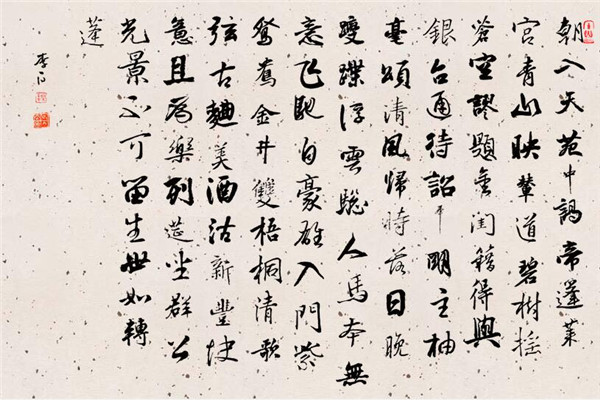 朝入天苑中謁帝蓬萊
宮青山映輦道碧樹搖
蒼空謬題金閨籍得與
銀台通待詔奉明主抽
毫頌清風歸時落日晚
躞蹀浮雲驄人馬本無
意飛馳自豪雄入門紫
鴛鴦金井雙梧桐清歌
弦古麯美酒沽新豐快
意且為樂列筵坐群公
光景不可留生世如轉
蓬
李白